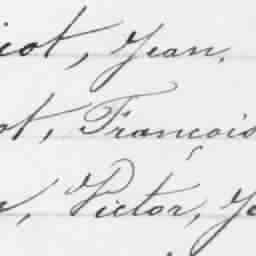 iot, Jean.
ot, François
, Victor, Je